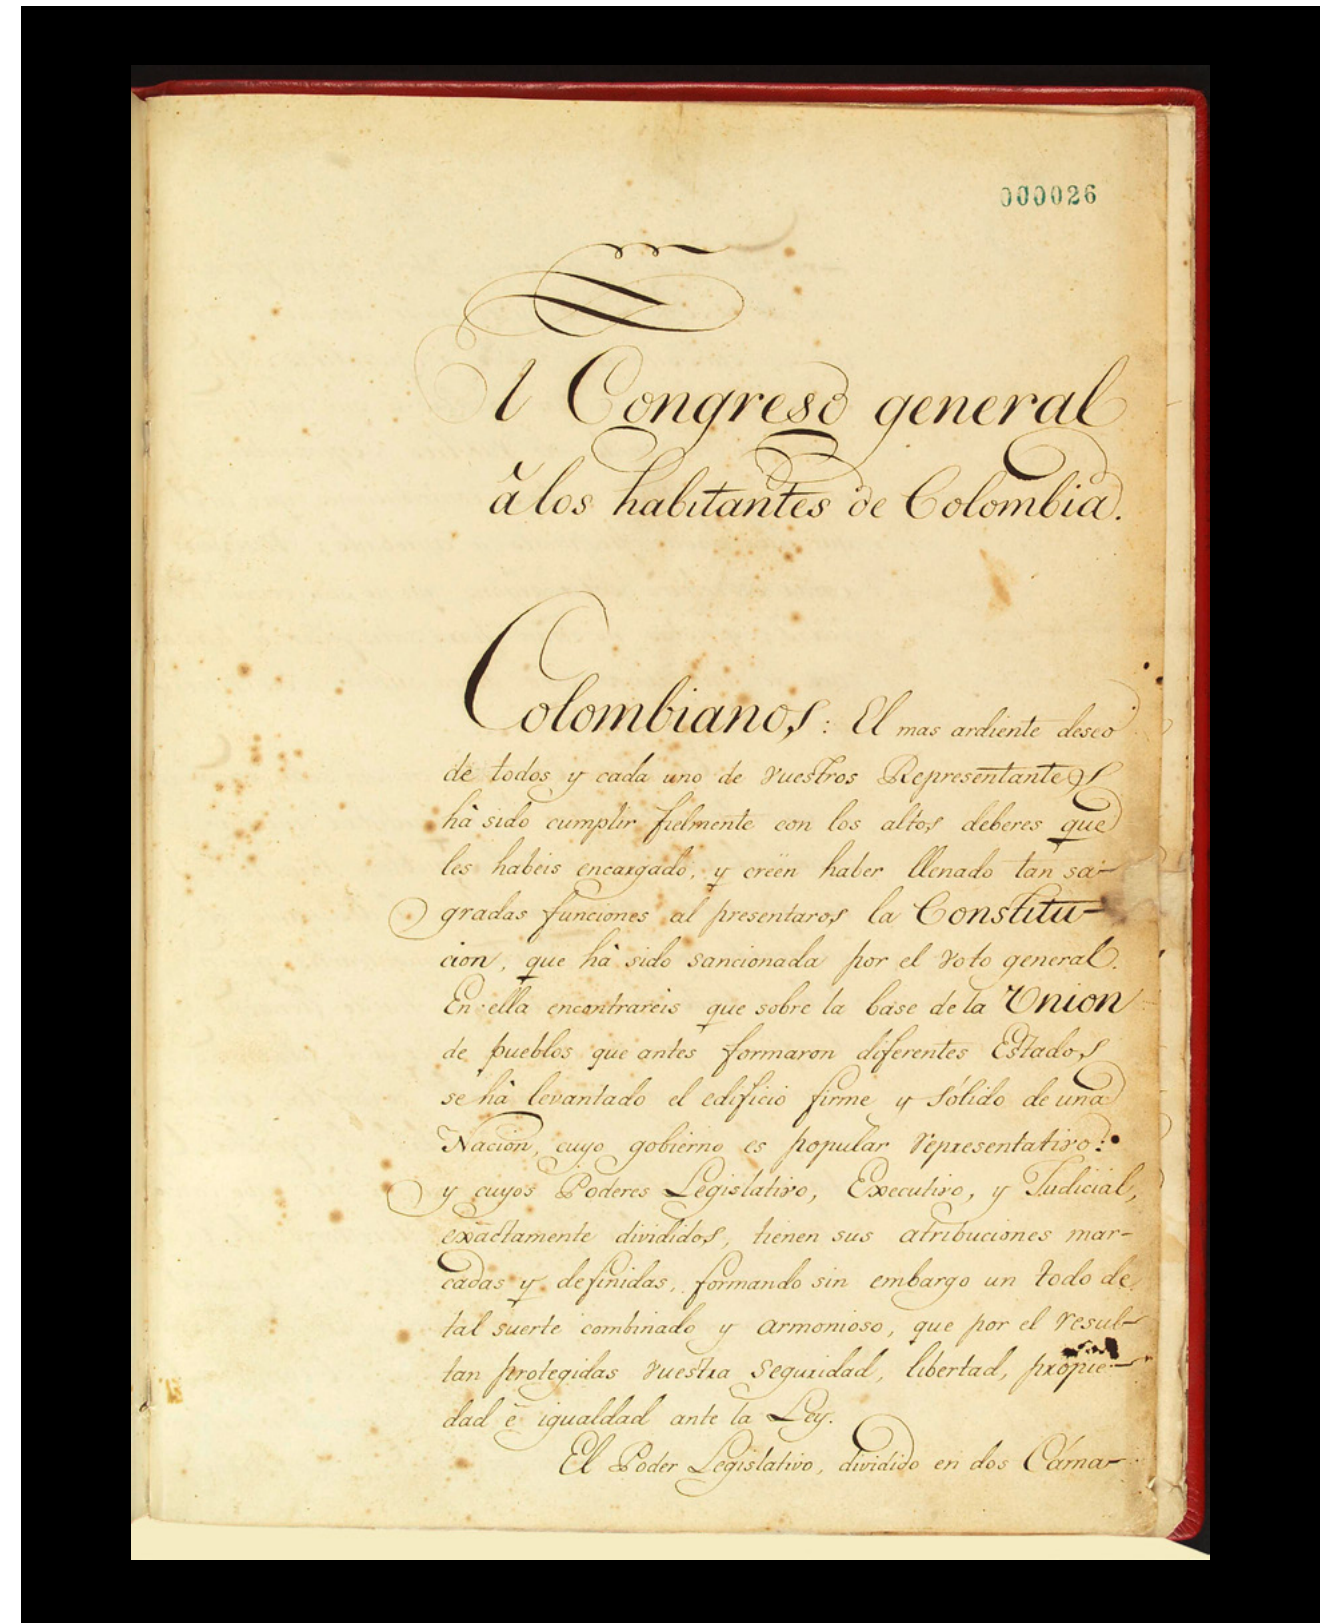 000026
El Congreso general
à los habitantes de Colombia.
Colombianos: El mas ardiente deseo
de todos y cada uno de vuestros Representantes
hà sido cumplir fielmente con los altos deberes que
les habeis encargado, y creën haber llenado tan sa-
gradas funciones al presentaros la Constitu-
cion, que hà sido sancionada por el voto general.
En ella encontrareis que sobre la base de la Union
de pueblos que antes formaron diferentes Estados
se hà levantado el edificio firme y sólido de una
Nacion, cuyo gobierno es popular representativo:
y cuyos Poderes Legislativo, Executivo, y Judicial,
exactamente divididos, tienen sus atribuciones mar-
cadas y definidas, formando sin embargo un todo de
tal suerte combinado y armonioso, que por el resul-
tan protegidas vuestra seguridad, libertad, propie-
dad è igualdad ante la Ley.
El Poder Legislativo, dividido en dos Cámar